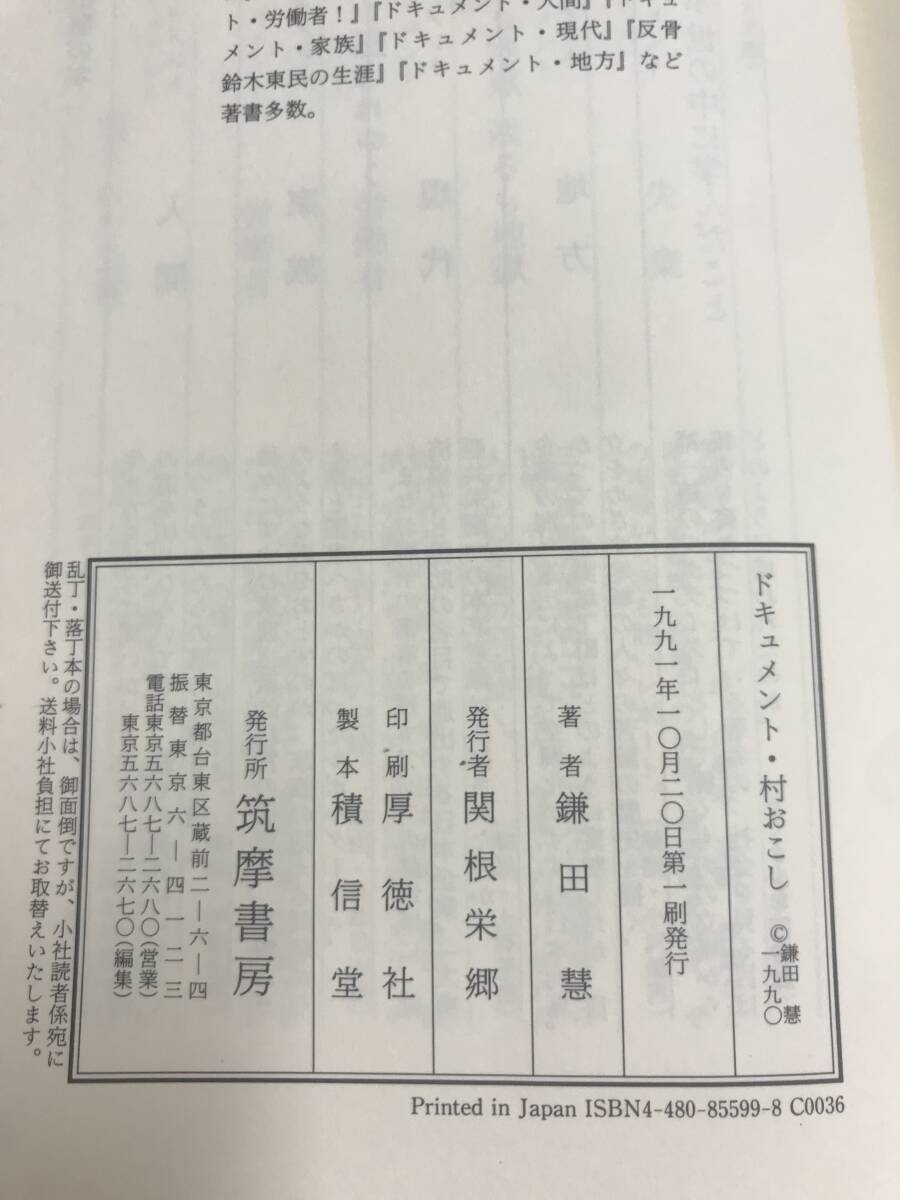 ト・労働者！』『ドキュメント・人間』『ドキュ
メント・家族』『ドキュメント・現代』『反骨
鈴木東民の生涯』『ドキュメント・地方』など
著書多数。
ドキュメント・村おこし ©鎌田 慧 一九九〇
一九九一年一〇月二〇日第一刷発行
著者 鎌田慧
発行者 関根栄郷
印刷 厚徳社
製本 積信堂
発行所 筑摩書房
東京都台東区蔵前二―六―四
振替東京六―四一二三
電話東京五六八七―二六八〇(営業)
東京五六八七―二六七〇(編集)
乱丁・落丁本の場合は、御面倒ですが、小社読者係宛に
御送付下さい。送料小社負担にてお取替えいたします。
Printed in Japan ISBN4-480-85599-8 C0036